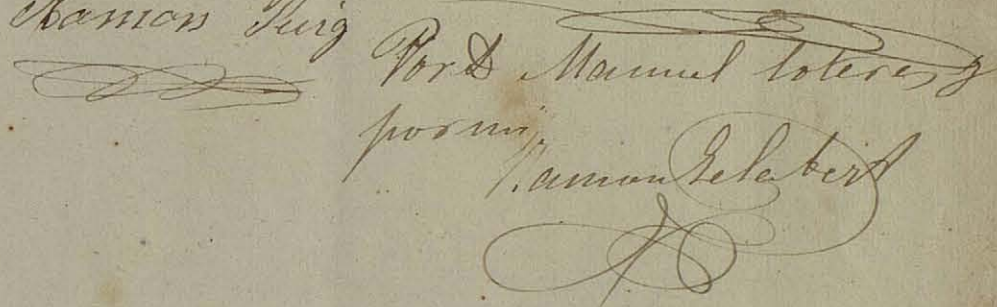 Ramon Puig
Por D Manuel Coteres y
por mi,
Ramon Gelabert